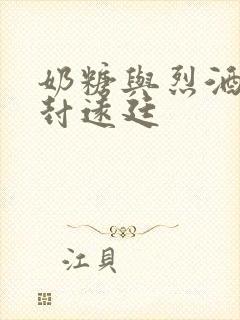 奶糖與烈酒
封遠廷
江貝